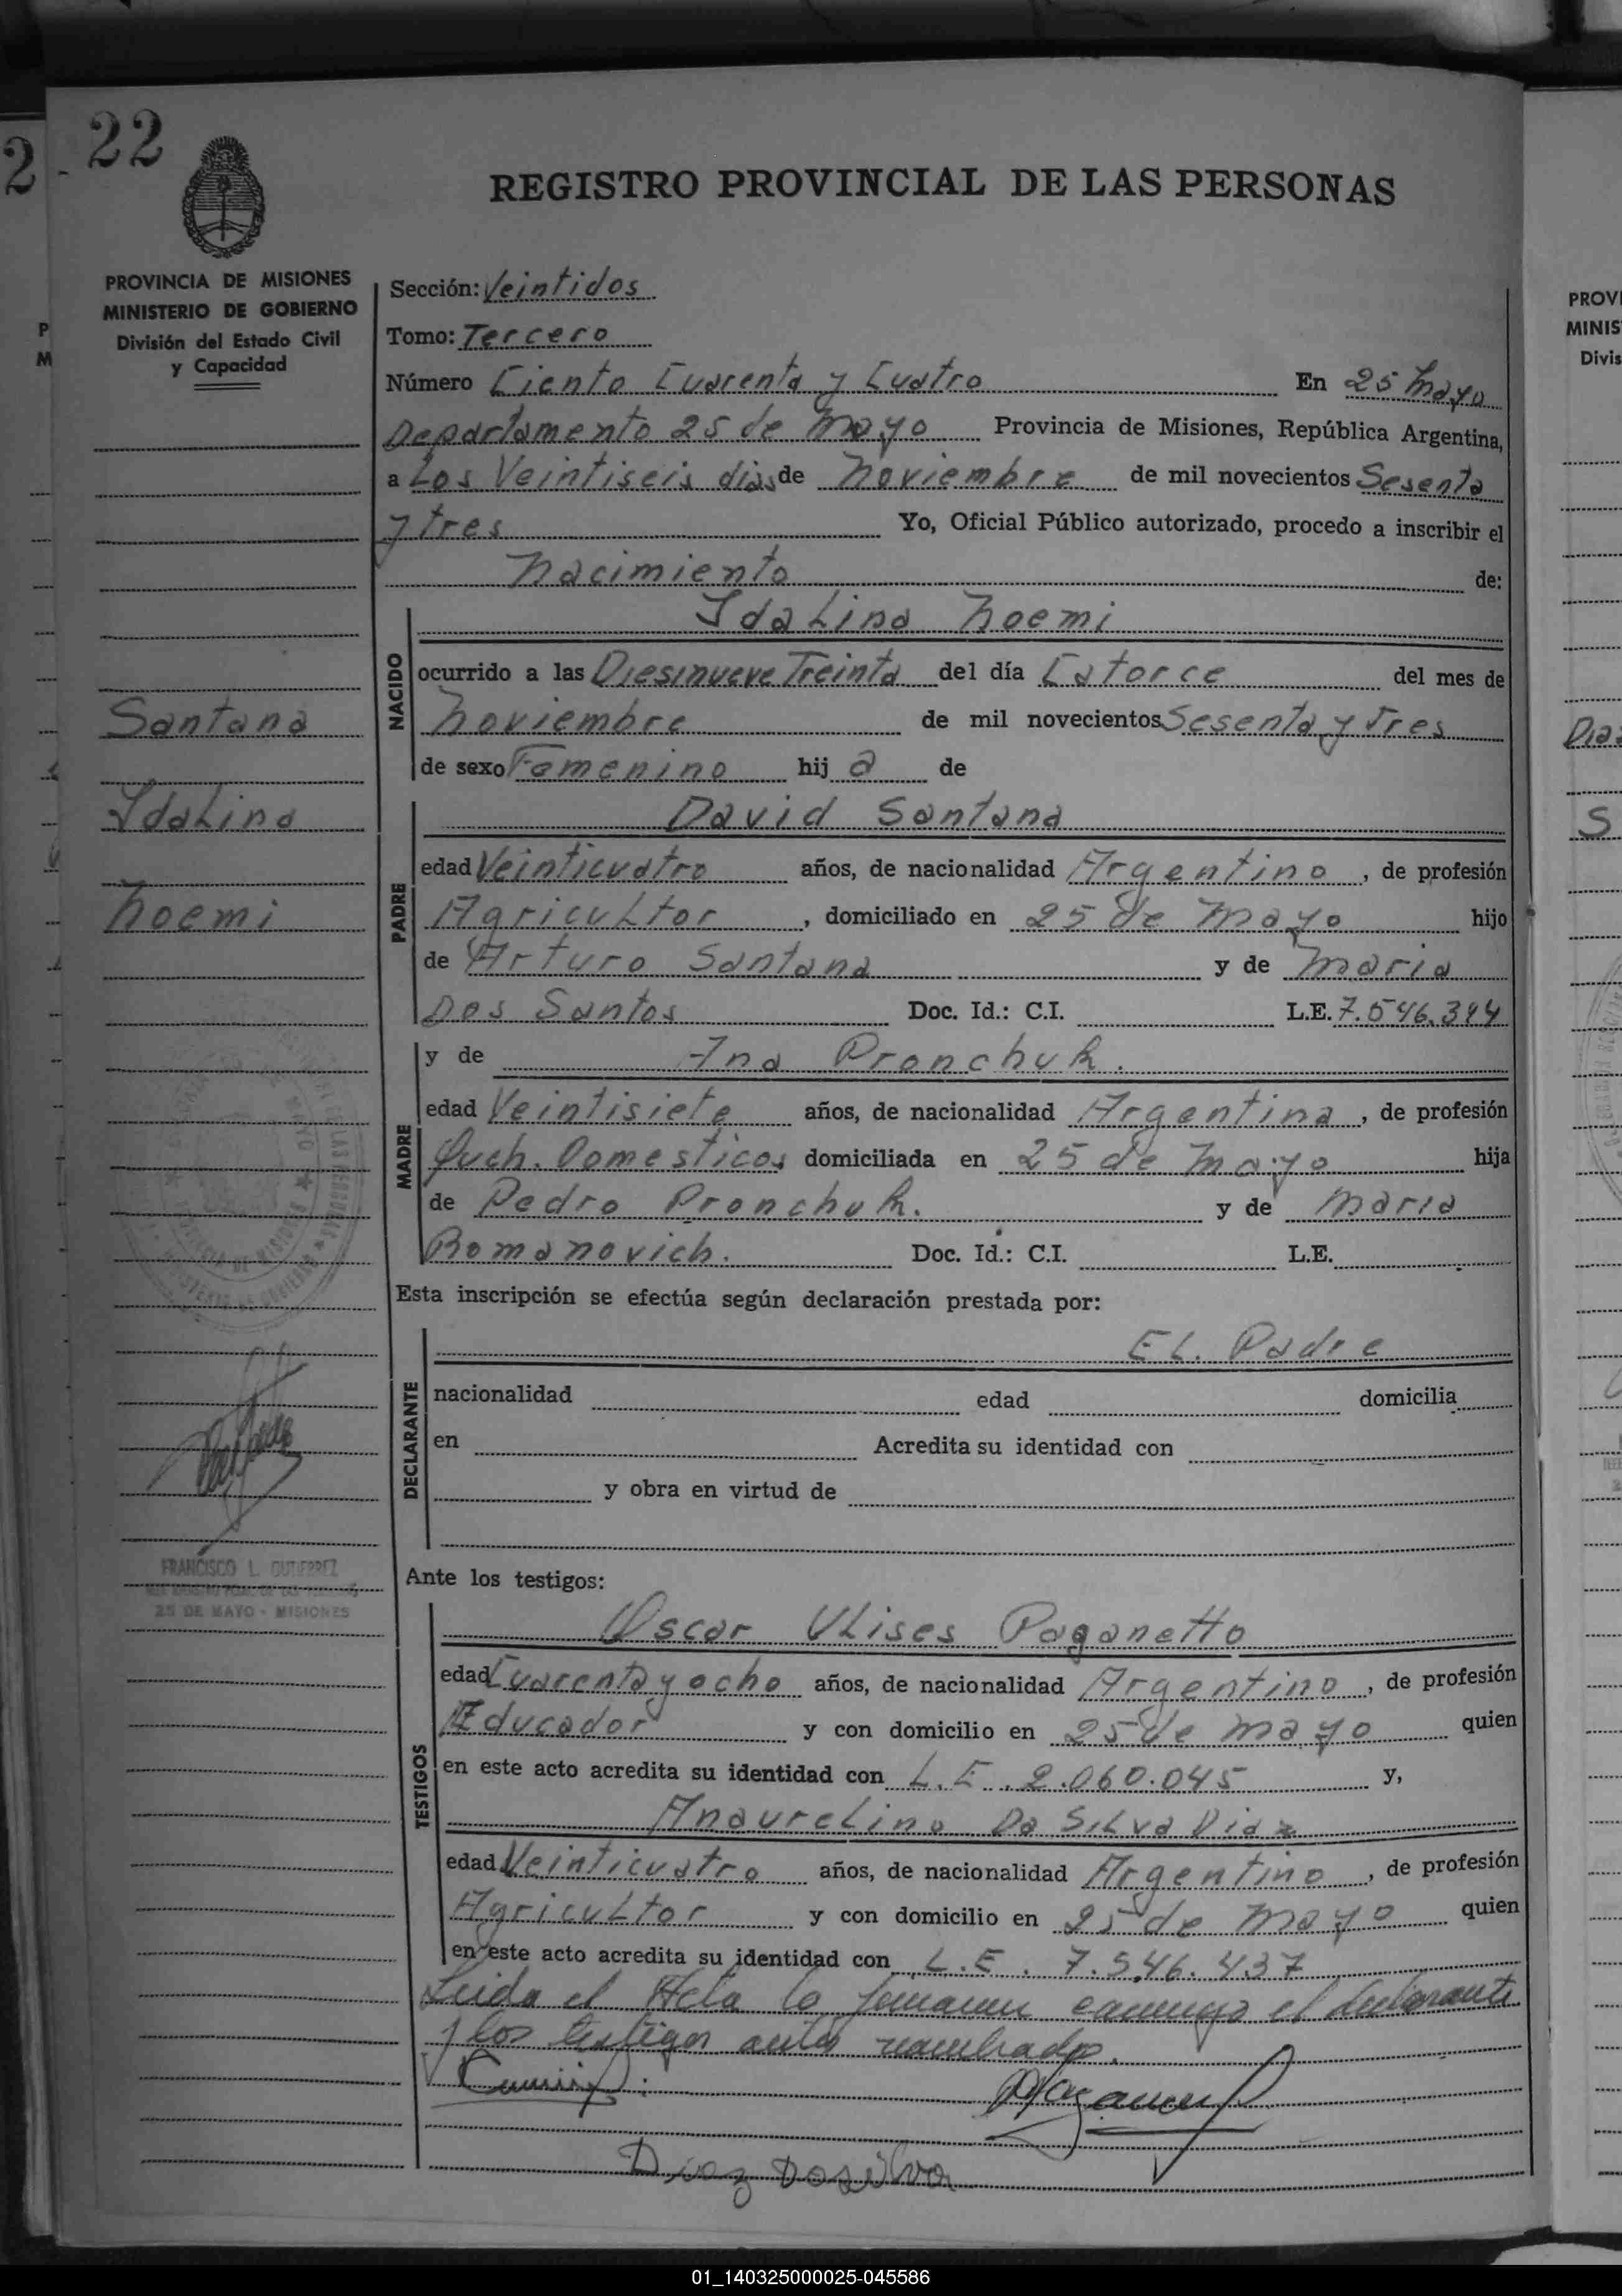 22
REGISTRO PROVINCIAL DE LAS PERSONAS
PROVINCIA DE MISIONES
MINISTERIO DE GOBIERNO
División del Estado Civil
y Capacidad
Sección: Veintidos
Tomo: Tercero
Número Ciento Cuarenta y Cuatro En 25 Mayo
Departamento 25 de Mayo Provincia de Misiones, República Argentina,
a Los Veintiseis dias de Noviembre de mil novecientos Sesenta
y tres Yo, Oficial Público autorizado, procedo a inscribir el
Nacimiento de:
Santana
Idalina
Noemi
NACIDO
Idalina Noemi
ocurrido a las Diesinueve Treinta del día Catorce del mes de
Noviembre de mil novecientos Sesenta y Tres
de sexo Femenino hij a de
PADRE
David Santana
edad Veinticuatro años, de nacionalidad Argentino, de profesión
Agricultor, domiciliado en 25 de Mayo hijo
de Arturo Santana y de Maria
Dos Santos Doc. Id.: C.I. L.E. 7.546.394
MADRE
y de Ana Pronchuk.
edad Veintisiete años, de nacionalidad Argentina, de profesión
Queh. Domesticos domiciliada en 25 de Mayo hija
de Pedro Pronchuk. y de Maria
Romanovich. Doc. Id.: C.I. L.E.
Esta inscripción se efectúa según declaración prestada por:
DECLARANTE
EL. Padre
nacionalidad edad domicilia
en Acredita su identidad con
y obra en virtud de
FRANCISCO L. GUTIERREZ
25 DE MAYO - MISIONES
Ante los testigos:
TESTIGOS
Oscar Ulises Paganetto
edad Cuarenta y ocho años, de nacionalidad Argentino, de profesión
Educador y con domicilio en 25 de Mayo quien
en este acto acredita su identidad con L.E. 2.060.045 y,
Anaurelino Da Silva Diaz
edad Veinticuatro años, de nacionalidad Argentino, de profesión
Agricultor y con domicilio en 25 de Mayo quien
en este acto acredita su identidad con L.E. 7.546.437
Leida el Acta la firmaron conmigo el declarante
y los testigos antes nombrados.
Diaz Dasilva
01_140325000025-045586